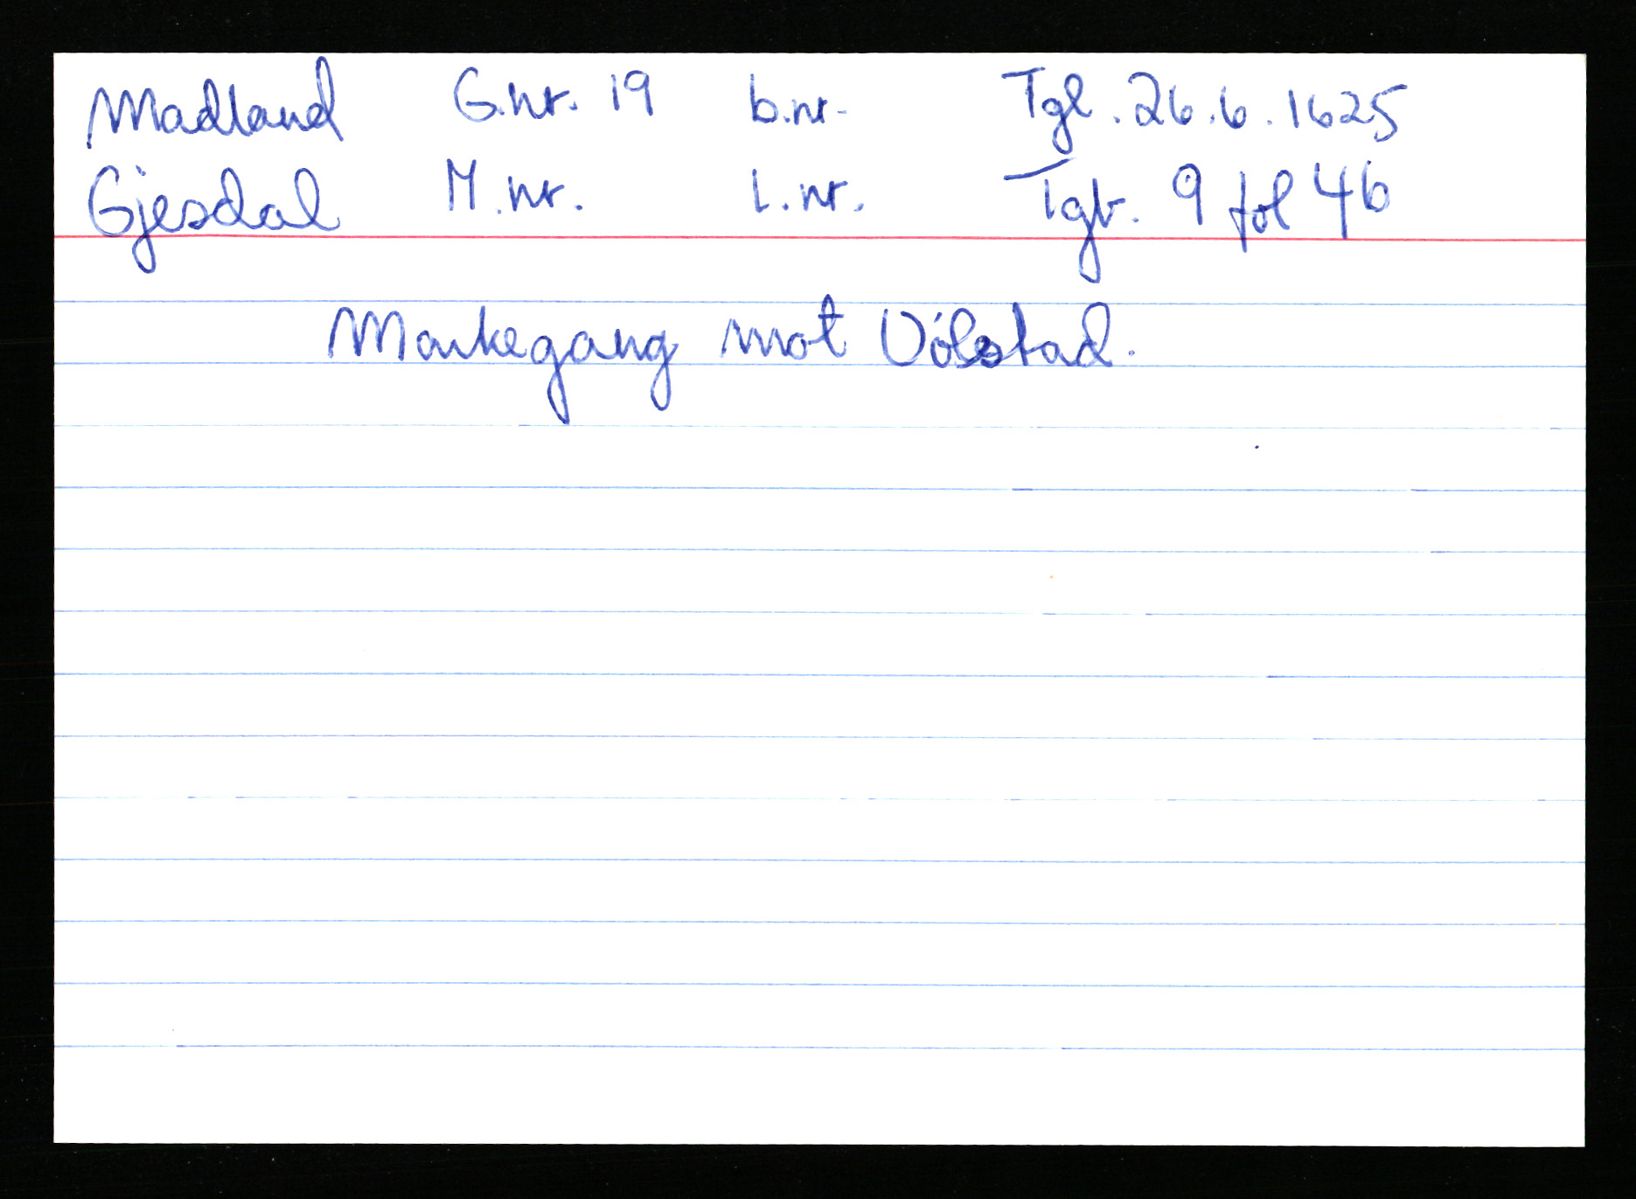 Madland G.nr. 19 b.nr. Tgl. 26.6.1625
Gjesdal M.nr. L.nr. Tgb. 9 fol 46
Markegang mot Ólstad.